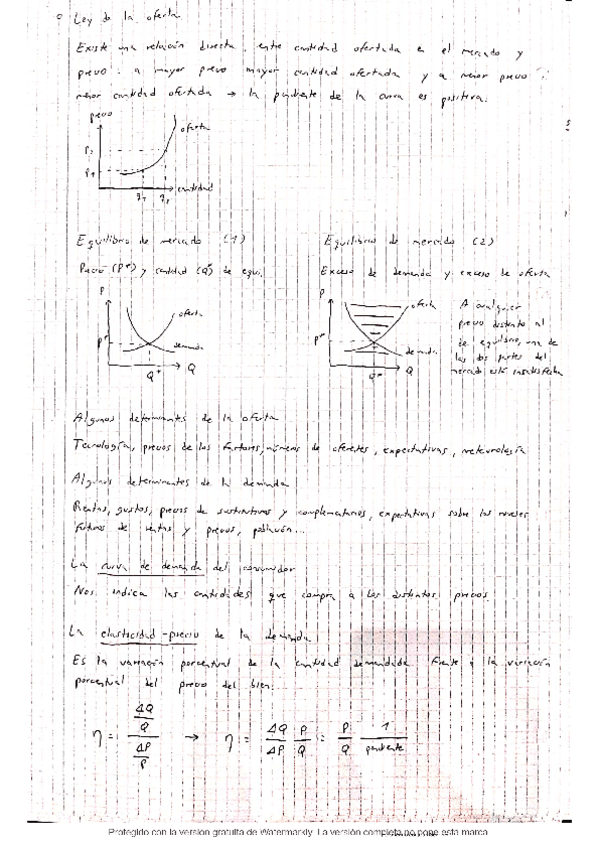 ○ Ley de la oferta
Existe una relación directa entre cantidad ofertada en el mercado y
precio: a mayor precio mayor cantidad ofertada y a menor precio
menor cantidad ofertada → la pendiente de la curva es positiva.
precio
oferta
P₂
P₁
cantidad
q₁ q₂
Equilibrio de mercado (1)
Precio (P*) y cantidad (Q*) de equi.
P
oferta
P*
demanda
Q* Q
Equilibrio de mercado (2)
Exceso de demanda y exceso de oferta
P
oferta
P*
demanda
Q* Q
A cualquier
precio distinto al
de equilibrio, una de
las dos partes del
mercado está insatisfecha
Algunos determinantes de la oferta
Tecnología, precios de los factores, números de oferentes, expectativas, meteorología
Algunos determinantes de la demanda
Rentas, gustos, precios de sustitutivos y complementarios, expectativas sobre los niveles
futuros de rentas y precios, población...
La curva de demanda del consumidor
Nos indica las cantidades que compra a los distintos precios.
La elasticidad-precio de la demanda
Es la variación porcentual de la cantidad demandada frente a la variación
porcentual del precio del bien:
η = (ΔQ/Q)/(ΔP/P) → η = ΔQ/ΔP P/Q = P/Q 1/pendiente
Protegido con la versión gratuita de Watermarkly. La versión completa no pone esta marca